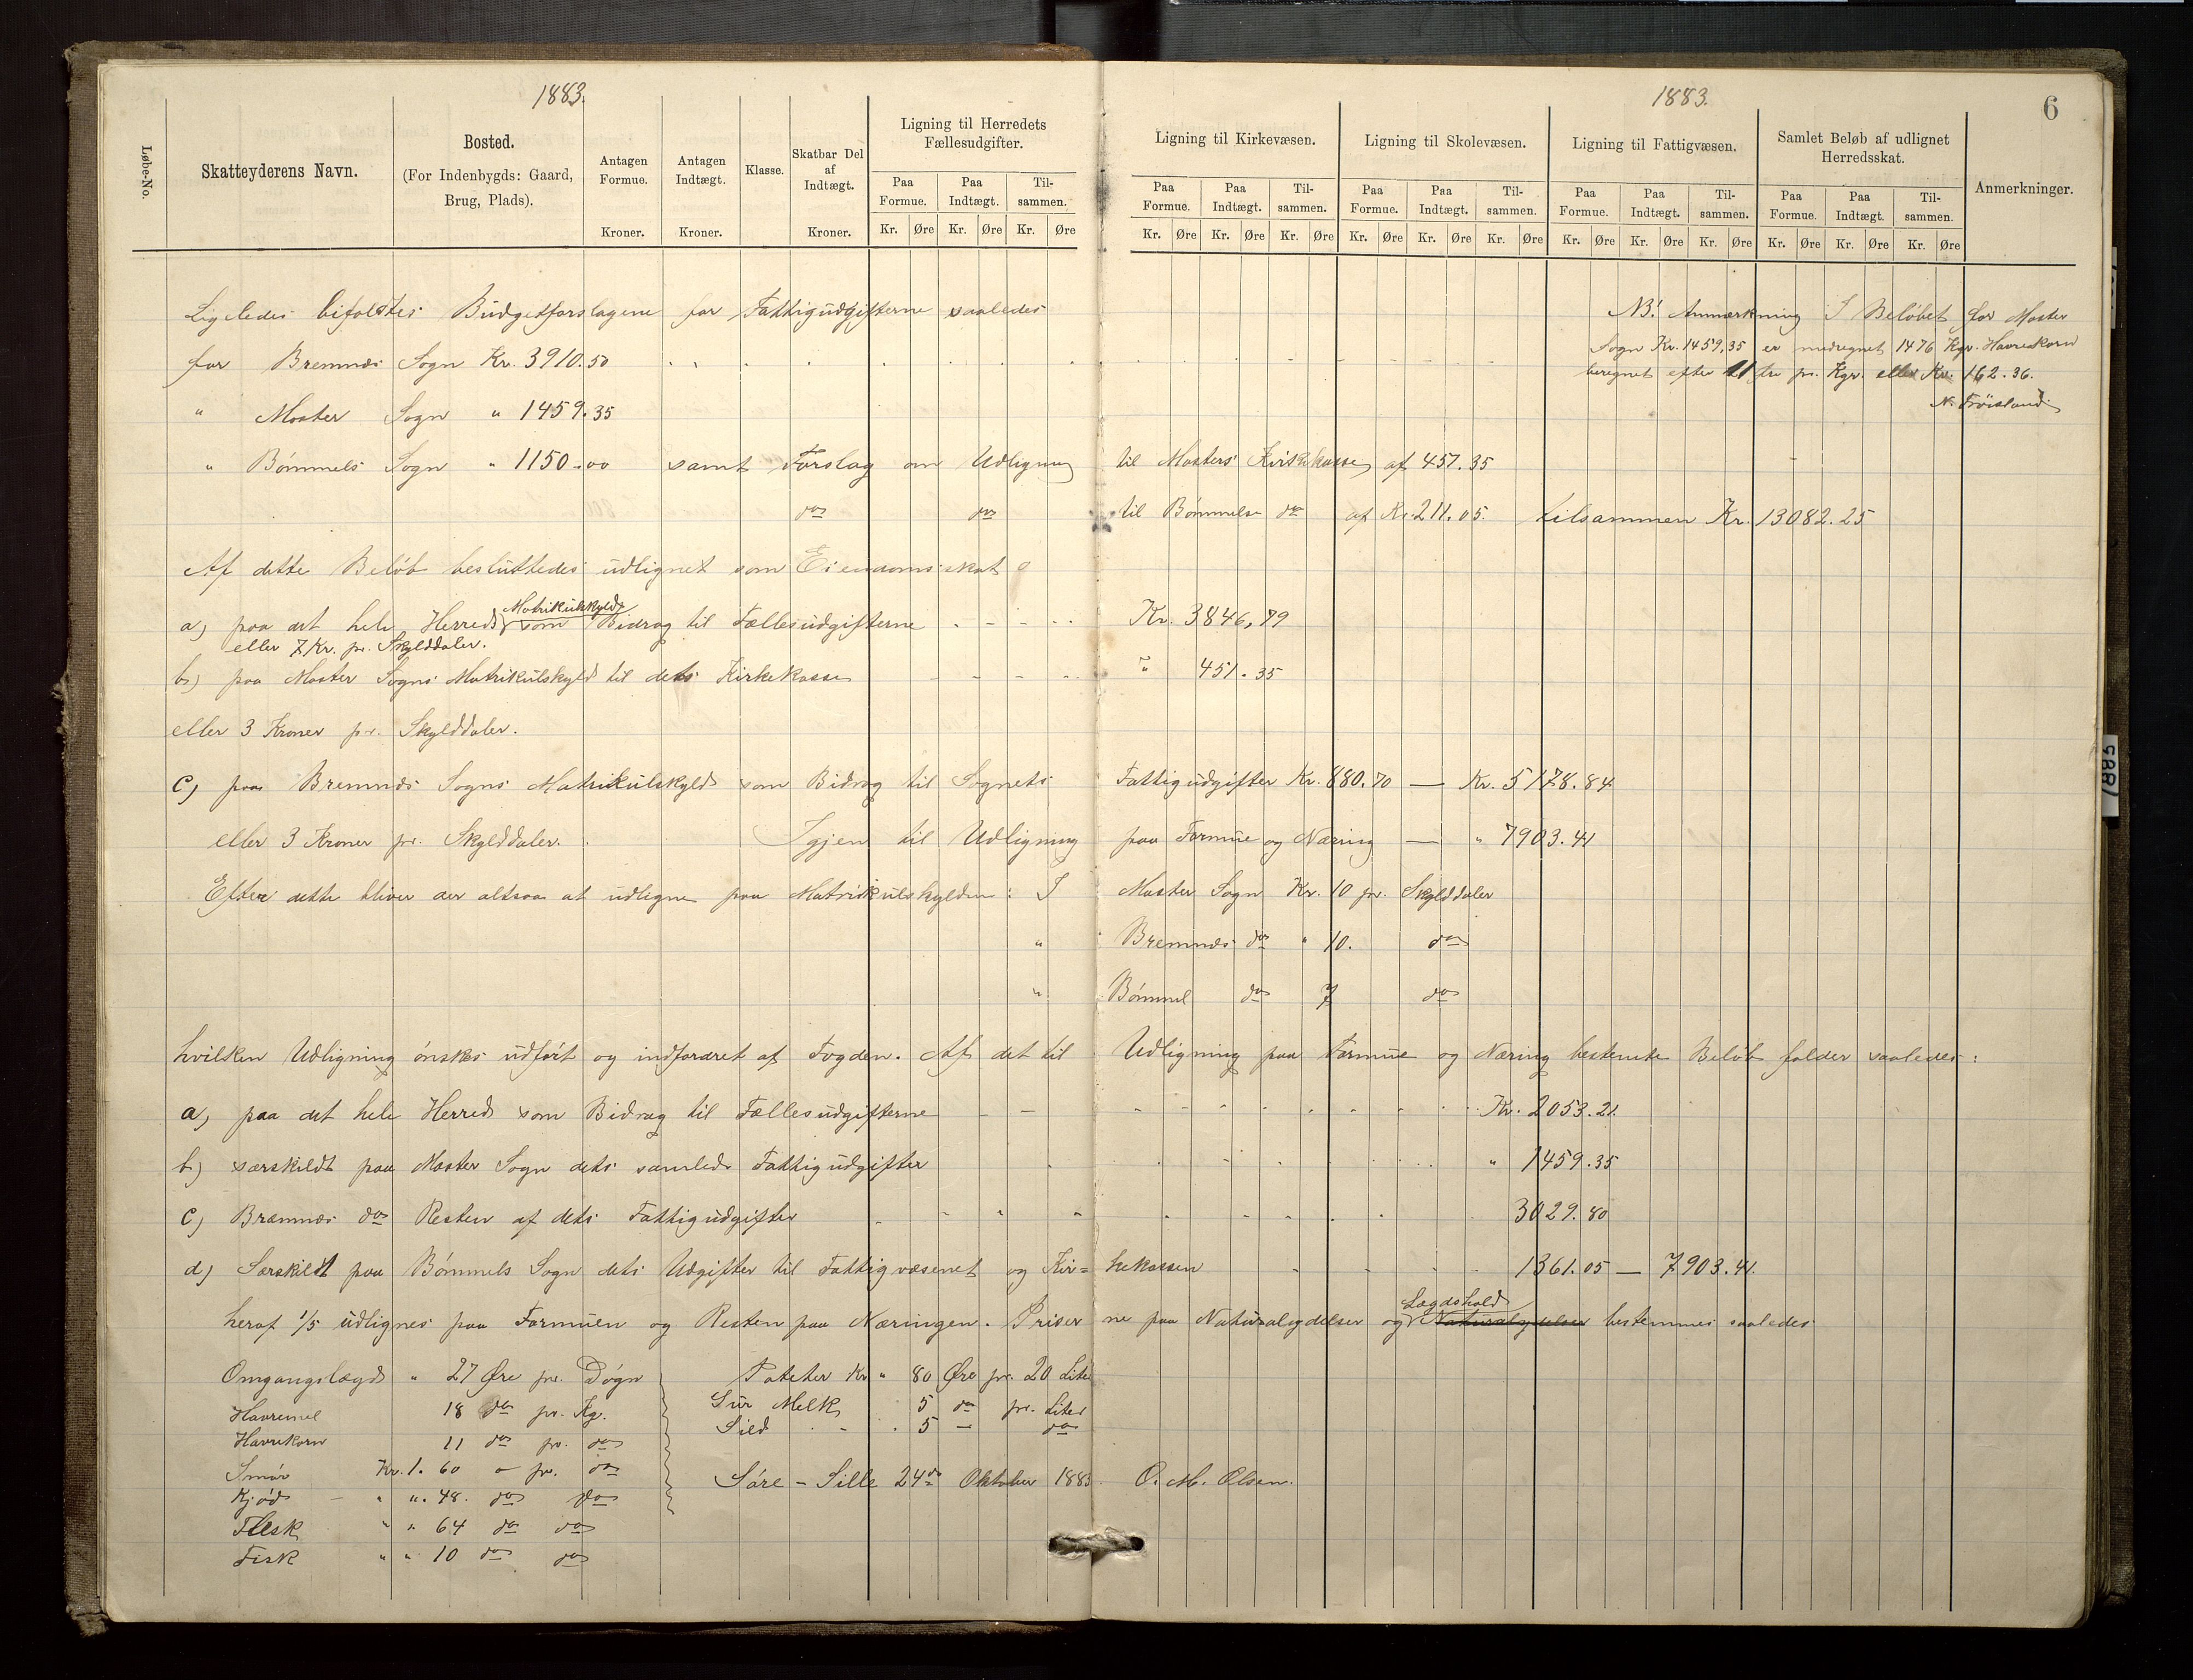 1883.
1883.
6
Løbe-No.
Skatteyderens Navn.
Bosted.
(For Indenbygds: Gaard, Brug, Plads).
Antagen Formue.
Kroner.
Antagen Indtægt.
Kroner.
Klasse.
Skatbar Del af Indtægt.
Kroner.
Ligning til Herredets Fællesudgifter.
Paa Formue. Paa Indtægt. Tilsammen.
Kr. Øre Kr. Øre Kr. Øre
Ligning til Kirkevæsen.
Paa Formue. Paa Indtægt. Tilsammen.
Kr. Øre Kr. Øre Kr. Øre
Ligning til Skolevæsen.
Paa Formue. Paa Indtægt. Tilsammen.
Kr. Øre Kr. Øre Kr. Øre
Ligning til Fattigvæsen.
Paa Formue. Paa Indtægt. Tilsammen.
Kr. Øre Kr. Øre Kr. Øre
Samlet Beløb af udlignet Herredsskat.
Paa Formue. Paa Indtægt. Tilsammen.
Kr. Øre Kr. Øre Kr. Øre
Anmerkninger.
Ligeledes bifaldtes Budgetforslagene for Fattigudgifterne saaledes
for Bremnes Sogn Kr. 3910.50
" Moster Sogn " 1459.35
NB. Anmærkning I Beløbet for Moster
Sogn Kr. 1459,35 er medregnet 1476 Kgr. Havrekorn
beregnet efter 11 Øre pr. Kgr. eller Kr. 162.36.
" Bømmels Sogn " 1150.00 samt Forslag om Udligning til Mosters Kirkekasse af 451.35
do do til Bømmels do af Kr. 211.05. tilsammen Kr. 13082.25
Af dette Beløb besluttedes udlignet som Eiendomsskat
a) paa det hele Herreds Matrikulskyld som Bidrag til Fællesudgifterne Kr. 3846,79
eller 7 Kr. pr. Skylddaler.
b) paa Moster Sogns Matrikulskyld til dets Kirkekasse " 451.35
eller 3 Kroner pr. Skylddaler.
c) paa Bremnes Sogns Matrikulskyld som Bidrag til Sognets Fattigudgifter Kr. 880.70 — Kr. 5178.84
eller 3 Kroner pr. Skylddaler. Igjen til Udligning paa Formue og Næring — " 7903.41
Efter dette bliver der altsaa at udligne paa Matrikulskylden: I Moster Sogn Kr. 10 pr. Skylddaler
" Bremnes do " 10. do
" Bømmel do 7 do
hvilken Udligning ønskes udført og indfordret af Fogden. Af det til Udligning paa Formue og Næring bestemte Beløb falder saaledes:
a) paa det hele Herred som Bidrag til Fællesudgifterne Kr. 2053.21.
b) særskildt paa Moster Sogn dets samlede Fattigudgifter " 1459.35
c) Bremnes do Resten af dets Fattigudgifter 3029.80
d) Særskildt paa Bømmels Sogn dets Udgifter til Fattigvæsenet og Kirkekassen 1361.05 — 7903.41.
heraf 1/5 udlignes paa Formuen og Resten paa Næringen. Priserne paa Naturalydelser og Lægdshold Naturalydelser bestemmes saaledes
Omgangslægd " 27 Øre pr. Døgn
Havremel 18 do pr. Kg.
Havrekorn 11 do pr. do
Smør Kr. 1.60 - pr. do
Kjød " ". 48. do do
Flesk " " 64 do do
Fisk " " 10 do do
Poteter Kr " 80 Øre pr. 20 Liter
Sur Melk 5 do pr. Liter
Sild 5 — do
Søre-Sille 24de Oktober 1883. O. M. Olsen.
1885